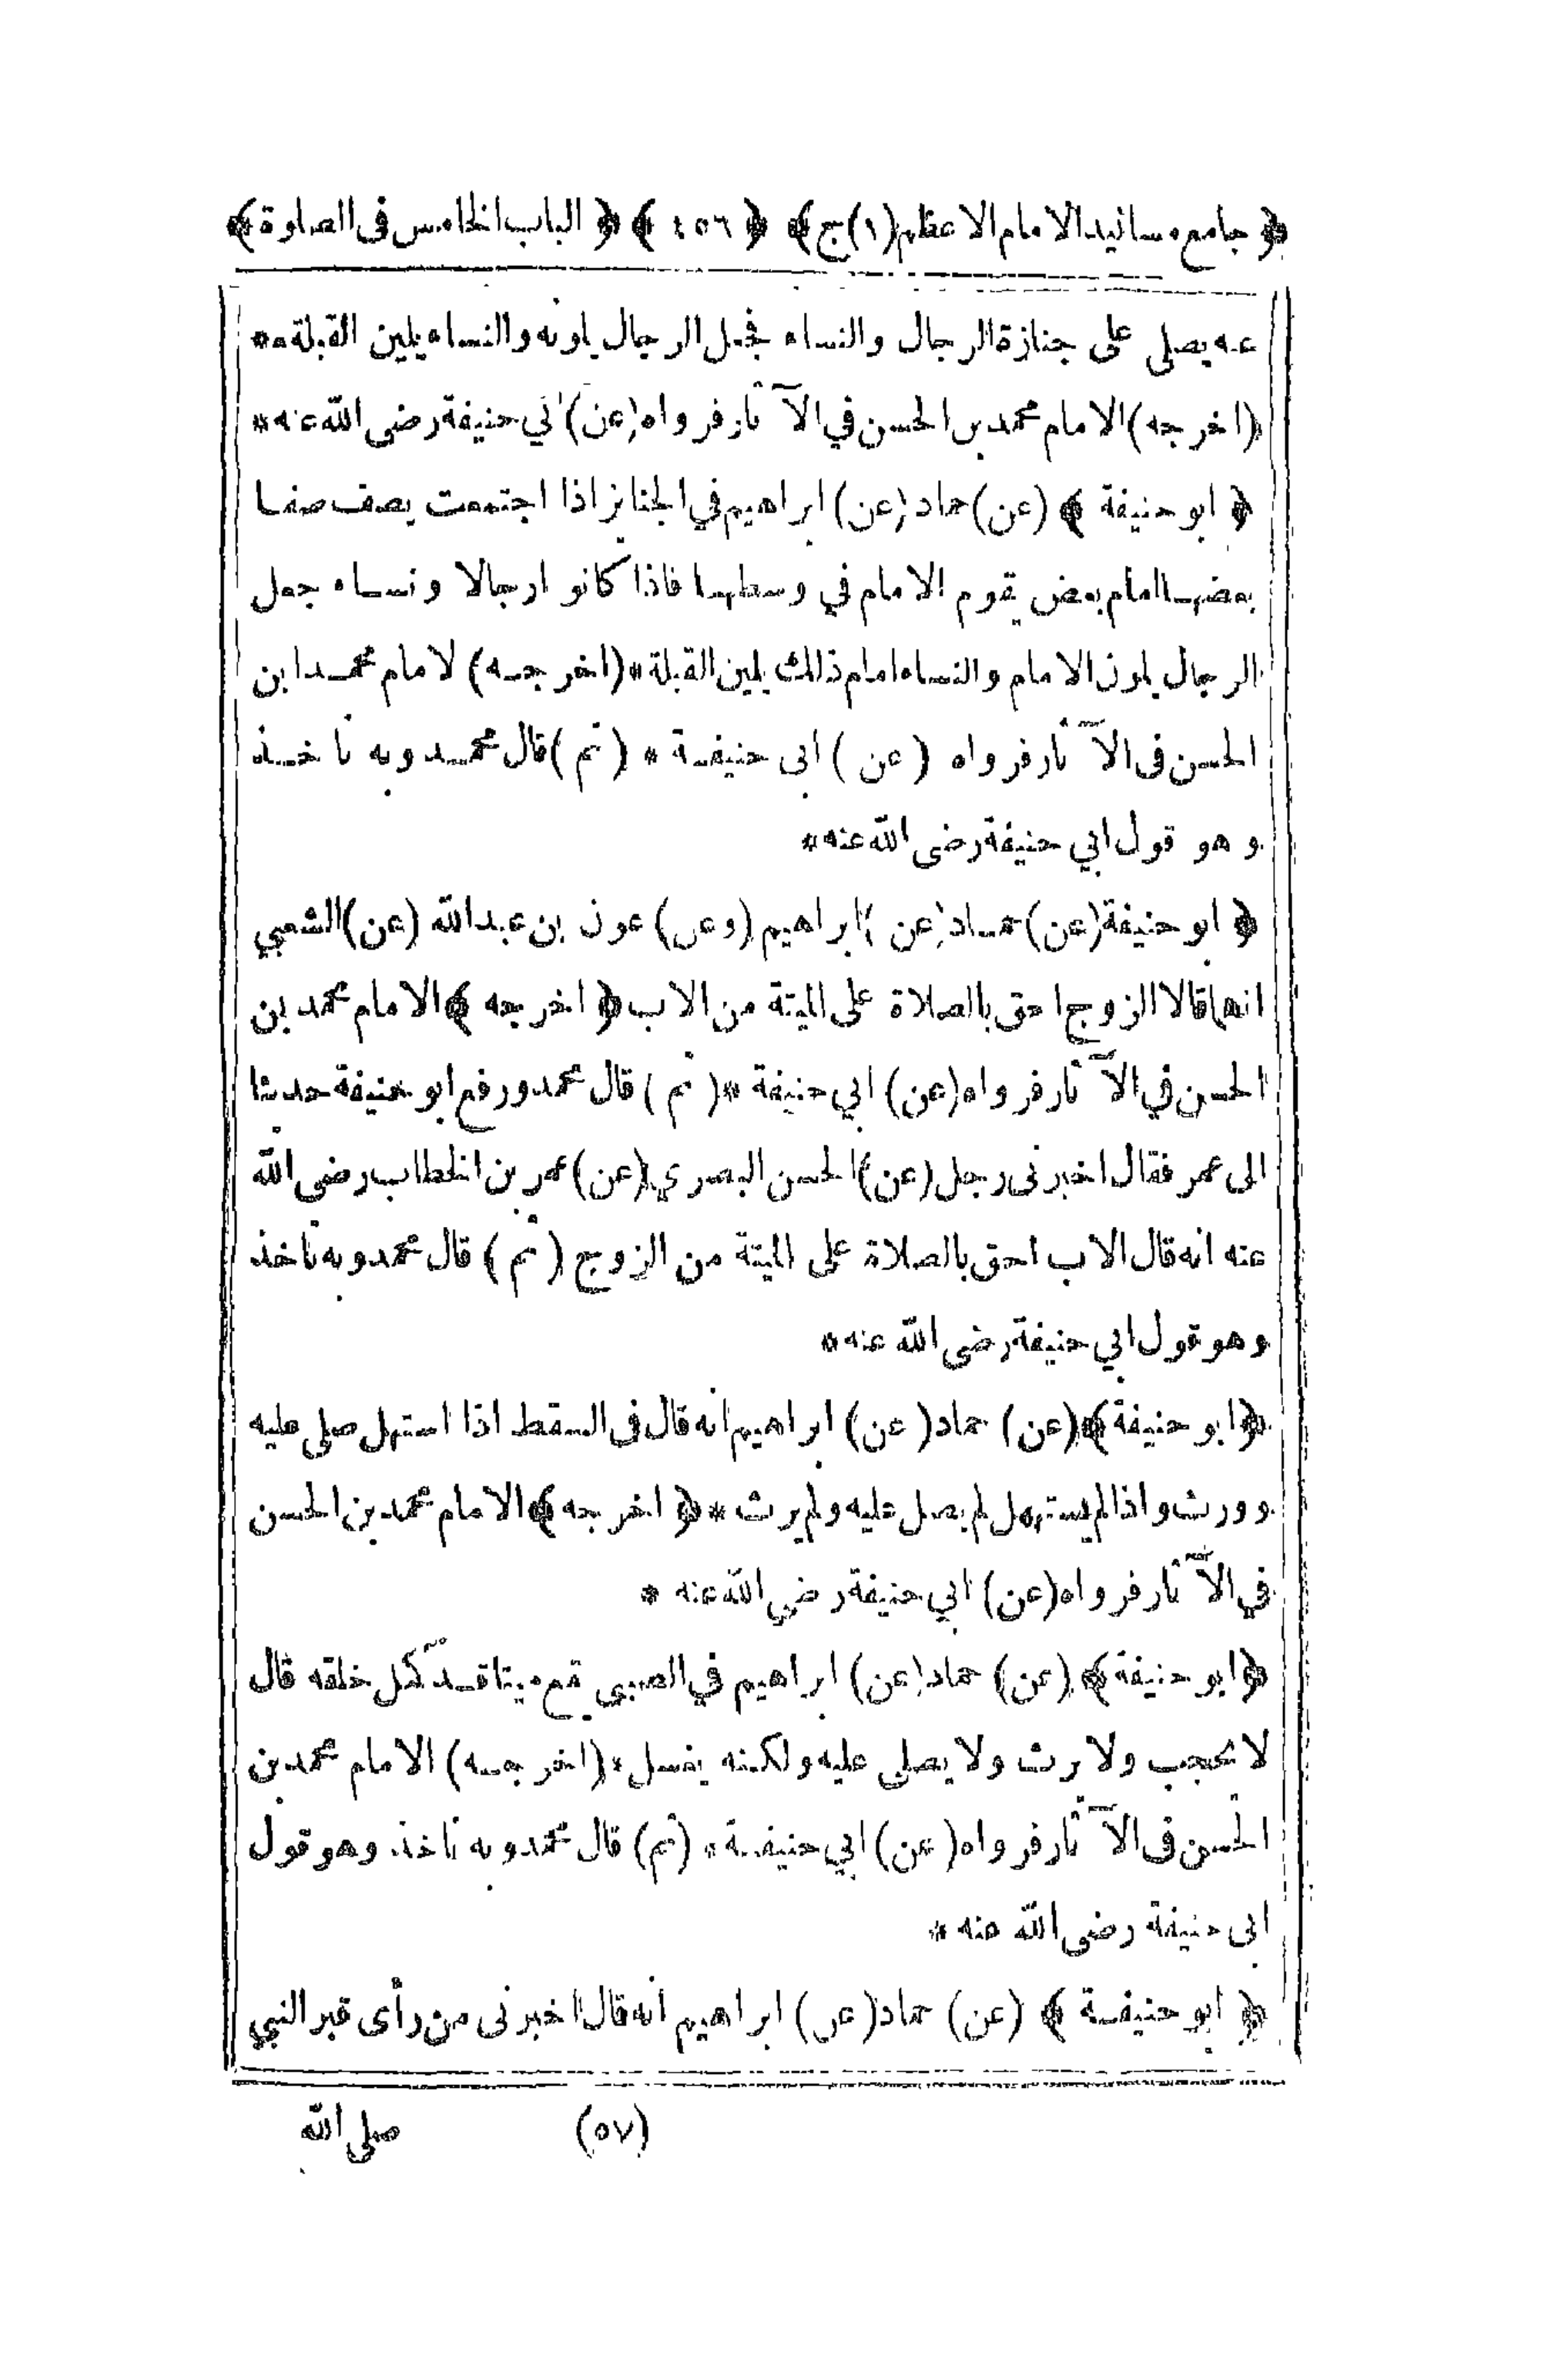 ﴿ جامع مسانيد الامام الاعظم (١) ج ﴾ ﴿ ٤٥٦ ﴾ ﴿ الباب الخامس فى الصلوة ﴾
عنه يصلى على جنازة الرجال والنساء فجعل الرجال يلونه والنساء يلين القبلة *
(اخرجه) الامام محمد بن الحسن في الآثار فرواه (عن) ابي حنيفة رضى الله عنه *
﴿ ابو حنيفة ﴾ (عن) حماد (عن) ابراهيم في الجنايز اذا اجتمعت يصف صفا
بعضها امام بعض يقوم الامام في وسطها فاذا كانوا رجالا ونساء جعل
الرجال يلون الامام والنساء امام ذلك يلين القبلة * (اخرجه) لامام محمد ابن
الحسن فى الآثار فرواه ( عن ) ابى حنيفة * ( ثم ) قال محمد وبه ناخذ
وهو قول ابي حنيفة رضى الله عنه *
﴿ ابو حنيفة (عن) حماد (عن) ابراهيم (وعن) عون بن عبد الله (عن) الشعبي
انهما قالا الزوج احق بالصلاة على الميتة من الاب ﴿ اخرجه ﴾ الامام محمد بن
الحسن في الآثار فرواه (عن) ابي حنيفة * ( ثم ) قال محمد ورفع ابو حنيفة حديثا
الى عمر فقال اخبرنى رجل (عن) الحسن البصري (عن) عمر بن الخطاب رضى الله
عنه انه قال الاب احق بالصلاة على الميتة من الزوج ( ثم ) قال محمد وبه ناخذ
وهو قول ابي حنيفة رضى الله عنه *
﴿ ابو حنيفة ﴾ (عن) حماد ( عن ) ابراهيم انه قال فى السقط اذا استهل صلى عليه
وورث واذا لم يستهل لم يصل عليه ولم يرث * ﴿ اخرجه ﴾ الامام محمد بن الحسن
في الآثار فرواه (عن) ابي حنيفة رضي الله عنه *
﴿ ابو حنيفة ﴾ (عن) حماد (عن) ابراهيم في الصبي يقع ميتا قد كمل خلقه قال
لا يحجب ولا يرث ولا يصلى عليه ولكنه يغسل * (اخرجه) الامام محمد بن
الحسن فى الآثار فرواه ( عن ) ابي حنيفة * (ثم) قال محمد وبه ناخذ وهو قول
ابى حنيفة رضى الله عنه *
﴿ ابو حنيفة ﴾ (عن) حماد (عن) ابراهيم انه قال اخبرنى من رأى قبر النبي
(٥٧) صلى الله